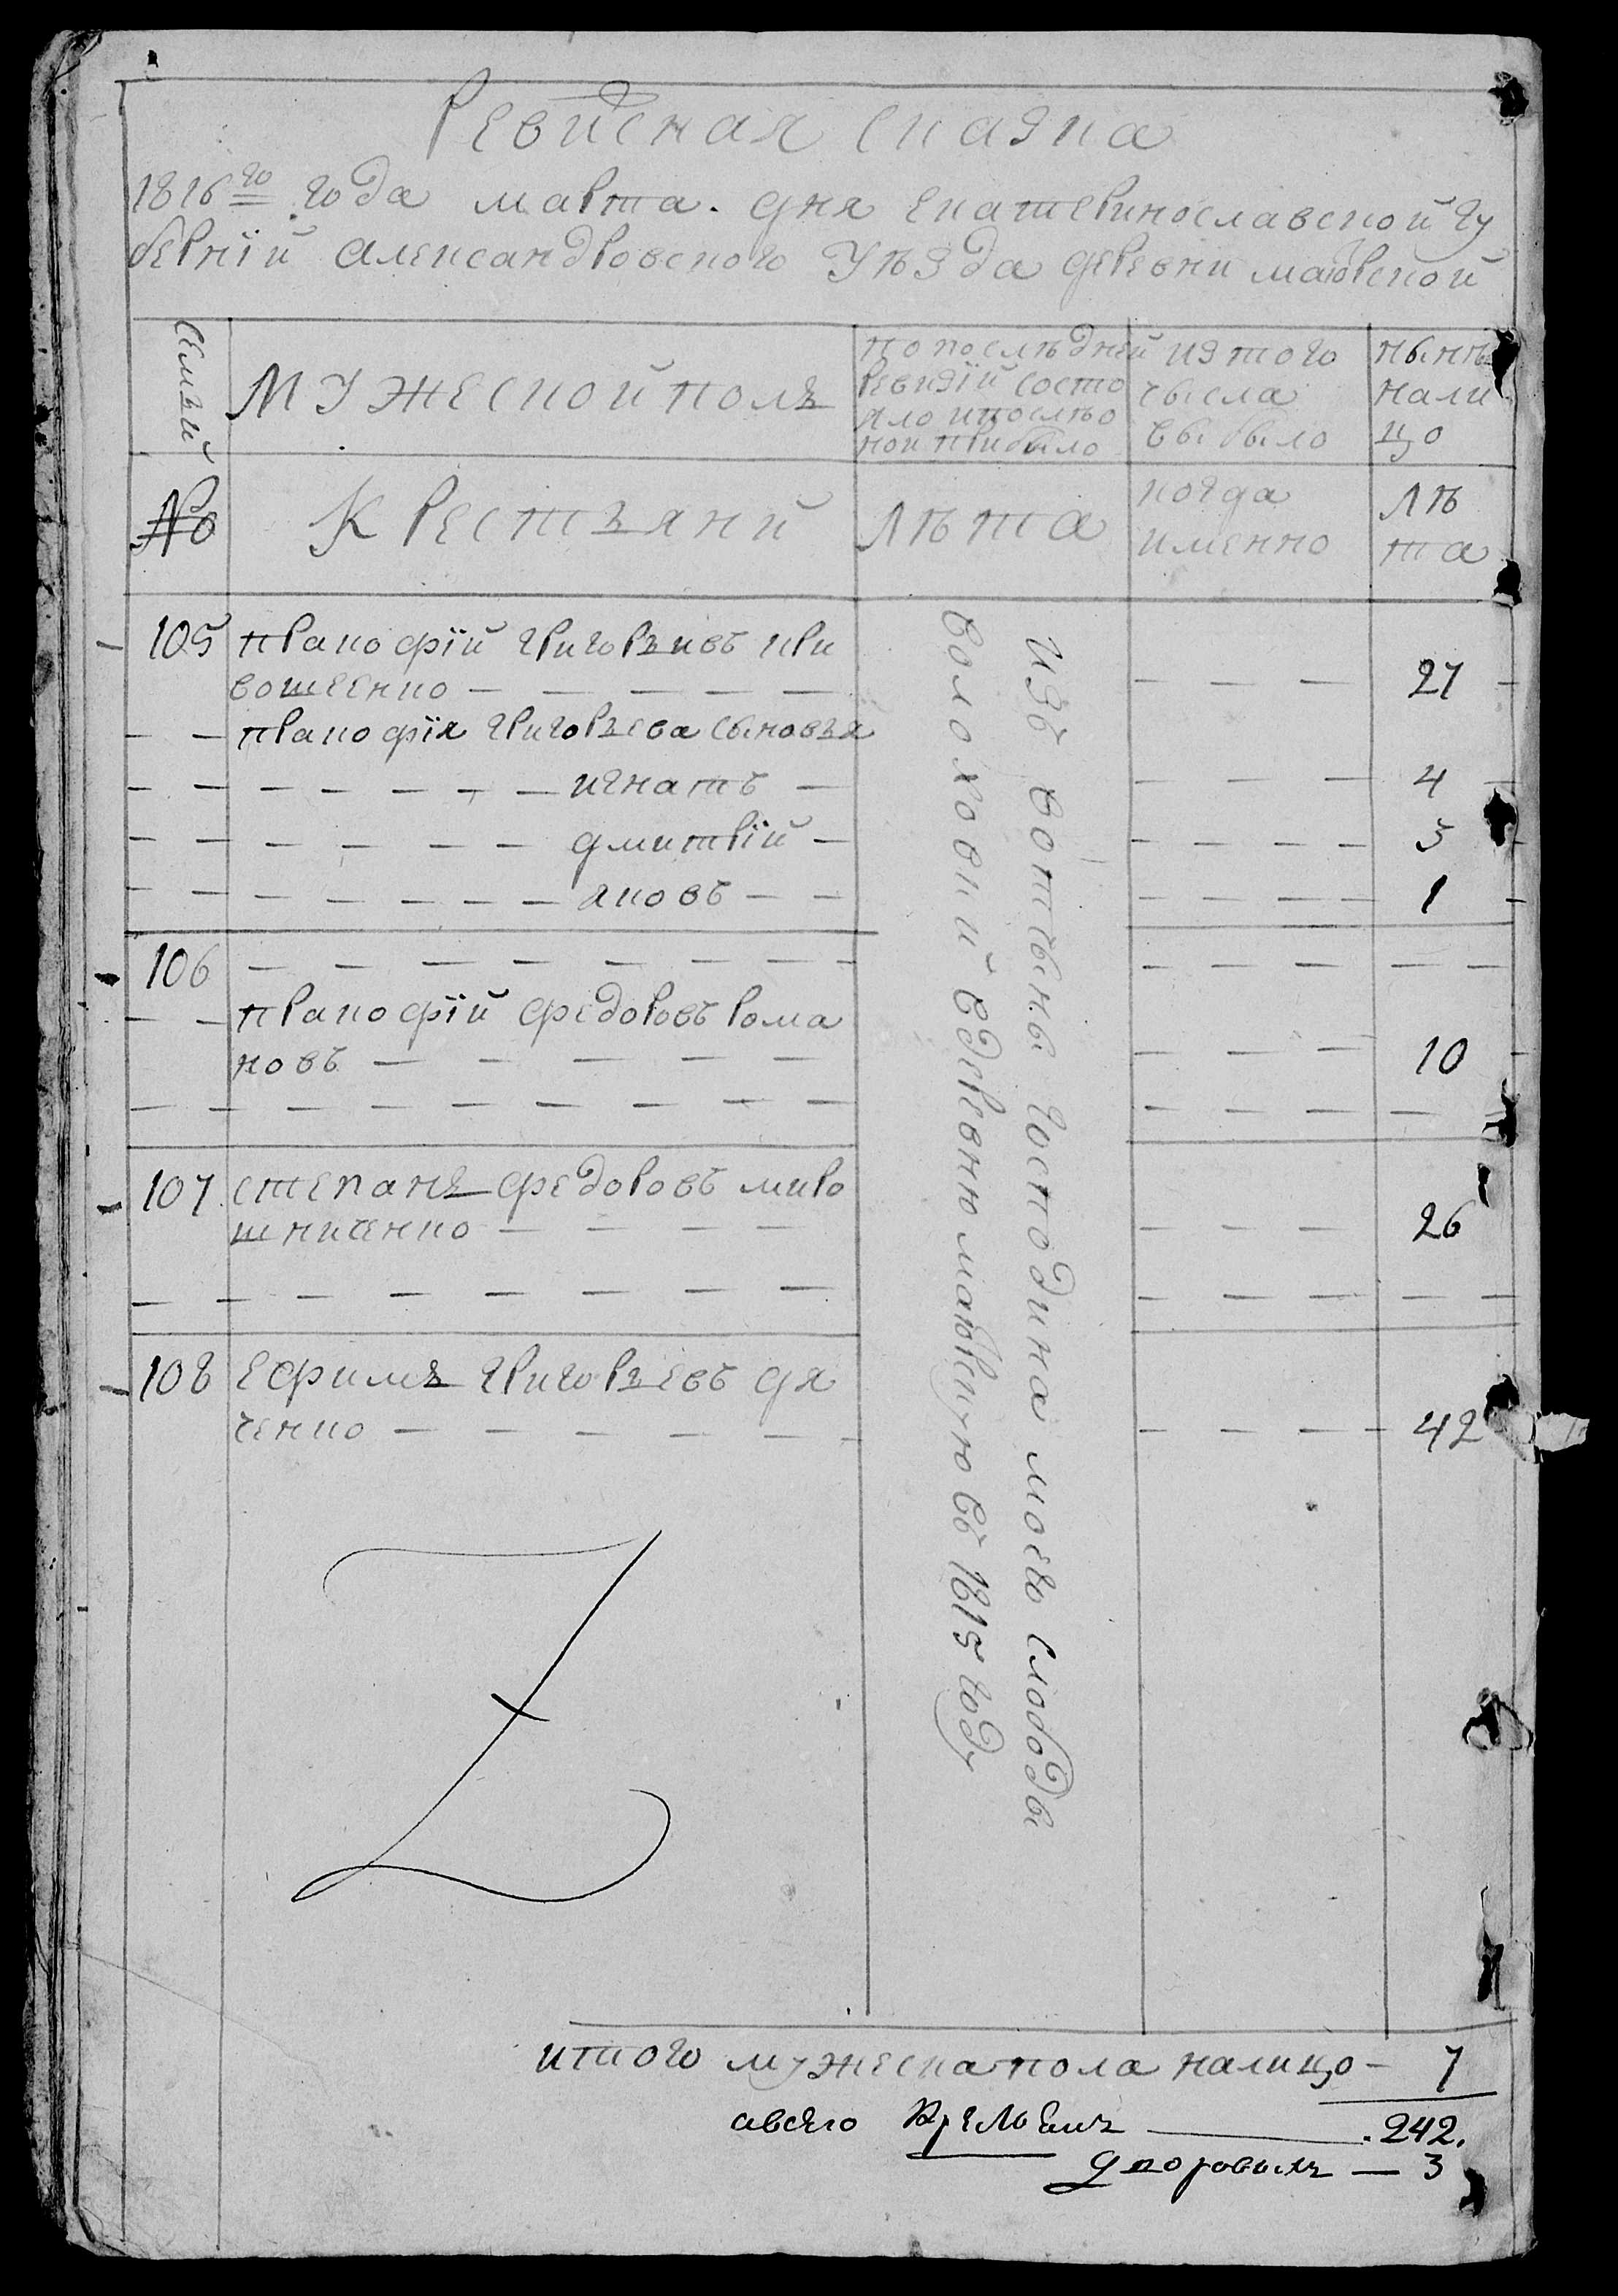 Ревиская сказка
1816го года марта. дня екатеринославской гу
бернїи александровского уѣзда деревни маюрской
семьи
мужескои полъ
по послѣдней
ревизїи состо
яло ипослѣо
нои прибыло
изтого
чысла
выбыло
нынѣ
нали
цо
№
крестьянй
лѣта
когда
именно
лѣ
та
105 пракофїй григорьивъ кри
вошеенко — — — — — — — — 27
— — пракофїя григорьева сыновья
— — — — — — — — игнатъ — — — — 4
— — — — — — — дмитрїй — — — — — 3
— — — — — — — яковъ — — — — — — 1
106 — — — — — — — — — — — — —
— — пракофїй федоровъ рома
новъ — — — — — — — — 10
— — — — — — — — — — — — — —
107 степанъ федоровъ миро
шниченко — — — — — — — 26
— — — — — — — — — — — — —
108 ефимъ григорьевъ дя
ченко — — — — — — — — — — 42
изъ вотчыны господина моего слободы
волоховки й вдеревню маюрскую въ 1815 году
итого мужеска пола налицо — 7
авсего крестьянъ — . 242.
дворовыхъ — 3